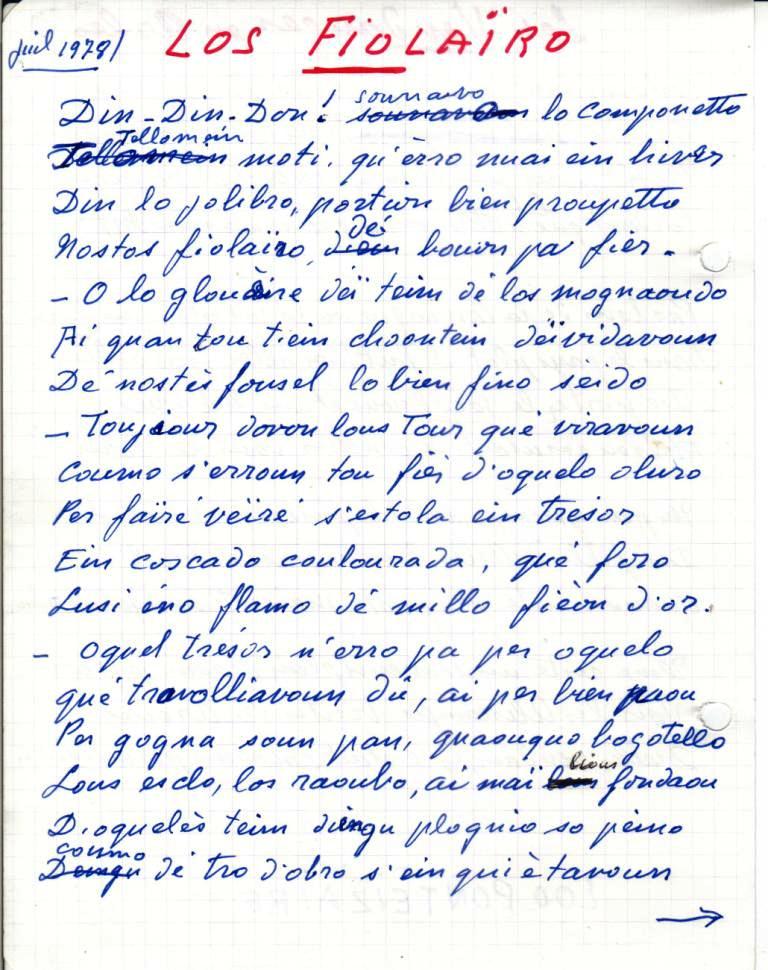 Juil 1978/ LOS FIOLAÏRO
Din-Din-Don! sounavo lo componetto
Tellomein moti, qu'èrro nuai ein hiver
Din lo jolibro, portiun bien proupetto
Nostos fiolaïro, dé bouon pa fier.
- O lo glouaire déï teim dé los mognaoudo
Ai quan tou tein choontein déïvidavoun
Dé nostès fousel lo bien fino seido
- Toujiour dovon lous Tour qué viravoun
Coumo s'erroun tou fier d'oquelo oluro
Per faïré véïré s'estola ein trésor
Ein coscado coulourada, qué foro
Lusi éno flamo dé millo fièon d'or.
- Oquel trésor n'erro pa per oquelo
qué travolliavoun dû, ai per bien paou
Per gogna soun pan, quaouquo bogotello
Lous esclo, los raoubo, ai maï lious foudaou
D'oquelès teim diengu plognio so peino
coumo dé tro d'obro s'ein quiètavoun
→